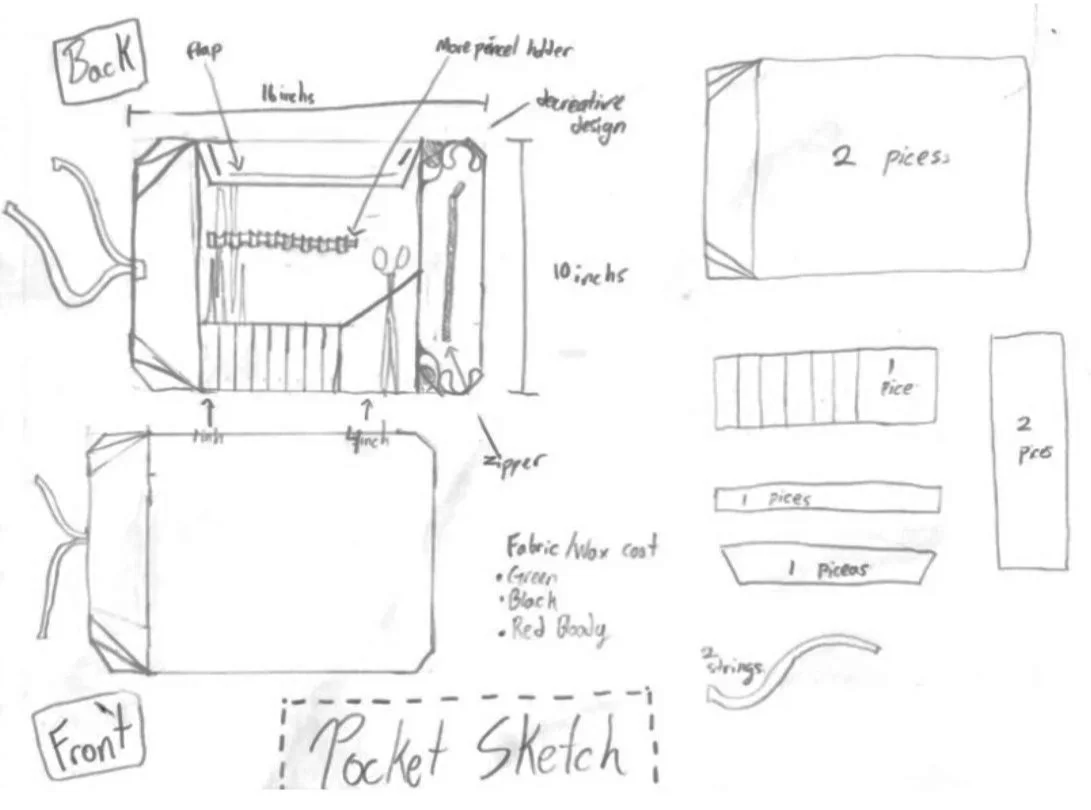 Back
Flap
More pencel holder
16 inchs
decreative
design
10 inchs
1 inch
4 inch
zipper
Front
Fabric/Wax coat
• Green
• Black
• Red Bloody
Pocket Sketch
2 picess
1
Pice
2
pices
1 pices
1 piceas
2
strings